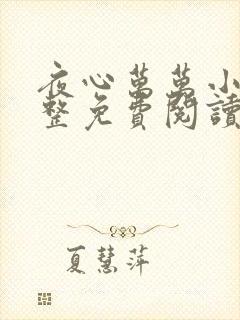 夜心萬萬小
整免費閱讀
夏慧萍